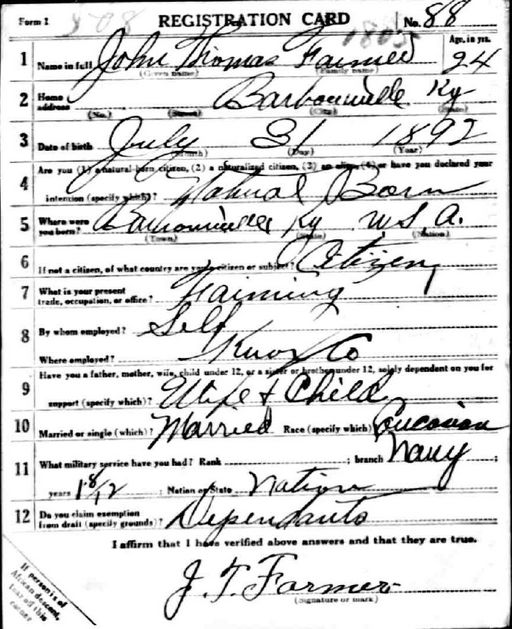 Form 1 REGISTRATION CARD No. 88
1 Name in full John Thomas Farmer Age, in yrs. 24
(Given name) (Family name)
2 Home address Barbourville Ky
(No.) (Street) (City) (State)
3 Date of birth July 31 1892
(Month) (Day) (Year)
4 Are you (1) a natural-born citizen, (2) a naturalized citizen, (3) an alien, (4) or have you declared your
intention (specify which)? Natural Born
5 Where were you born? Barbourville Ky U.S.A.
(Town) (State) (Nation)
6 If not a citizen, of what country are you a citizen or subject? Citizen
7 What is your present trade, occupation, or office? Farming
8 By whom employed? Self
Where employed? Knox Co
9 Have you a father, mother, wife, child under 12, or a sister or brother under 12, solely dependent on you for
support (specify which)? Wife & Child
10 Married or single (which)? Married Race (specify which)? Caucasian
11 What military service have you had? Rank ; branch Navy ;
years 1 8/12 ; Nation or State Nation
12 Do you claim exemption from draft (specify grounds)? Dependants
I affirm that I have verified above answers and that they are true.
J. T. Farmer
(Signature or mark)
If person is of
African descent,
tear off this
corner